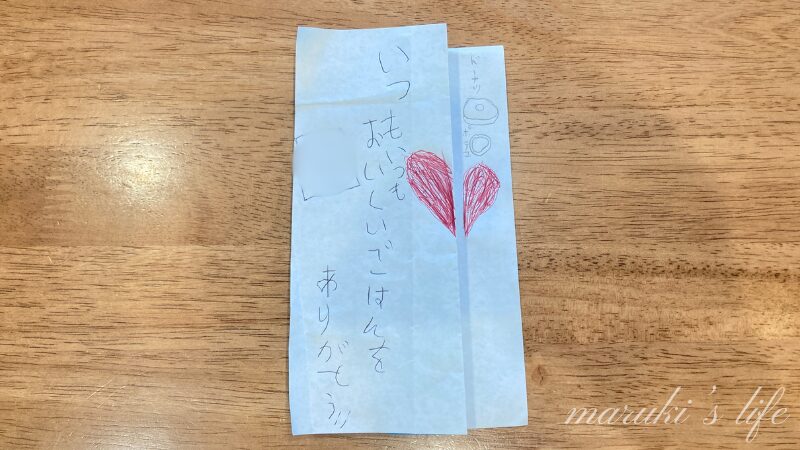 ドーナツ
いつもいつも
おいしいごはんを
ありがとう!!
maruki's life